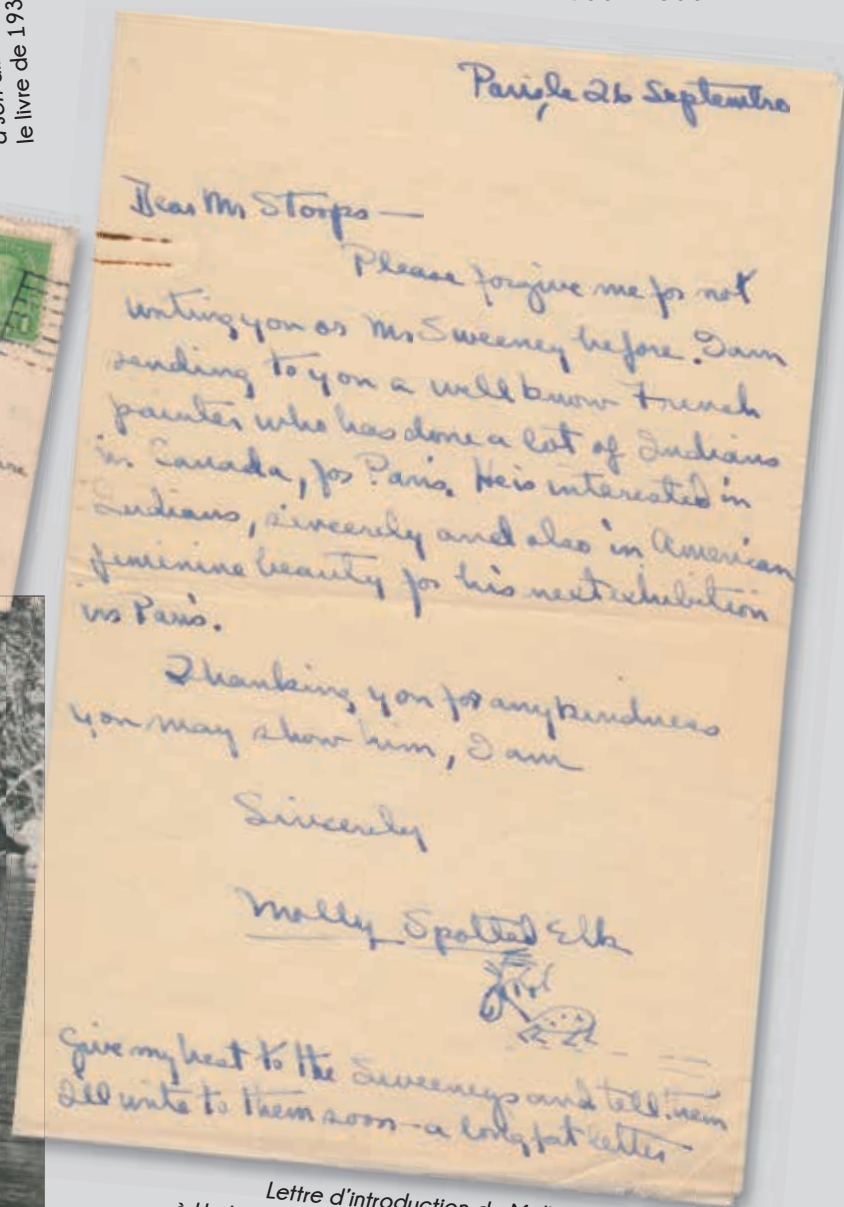 le livre de 193
Paris, le 26 Septembre
Dear Mr Stoops —
Please forgive me for not
writing you or Mr Sweeney before. I am
sending to you a well know French
painter who has done a lot of Indians
in Canada, for Paris. He is interested in
Indians, sincerely and also in American
feminine beauty for his next exhibition
in Paris.
Thanking you for any kindness
you may show him, I am
Sincerely
Molly Spotted Elk
Give my best to the Sweeneys and tell them
I'll write to them soon - a long fat letter
Lettre d'introduction de